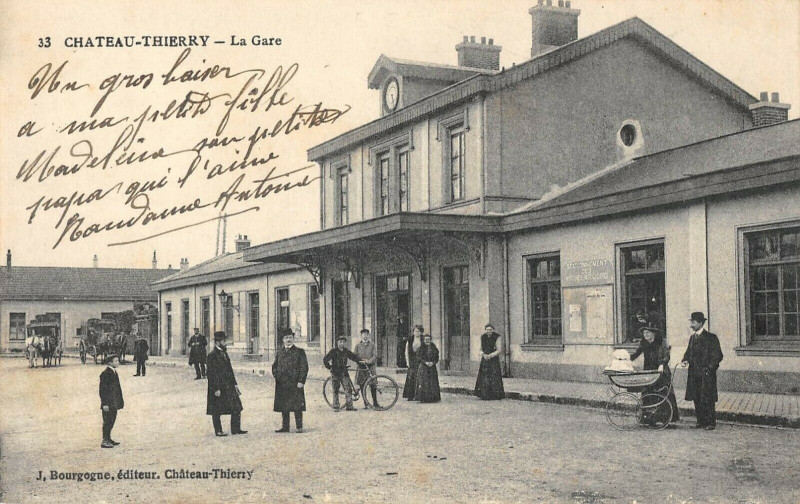 33 CHATEAU-THIERRY – La Gare
Un gros baiser
a ma petite fille
Madeleine son petit
papa qui l'aime
Antoine
J, Bourgogne, éditeur. Château-Thierry